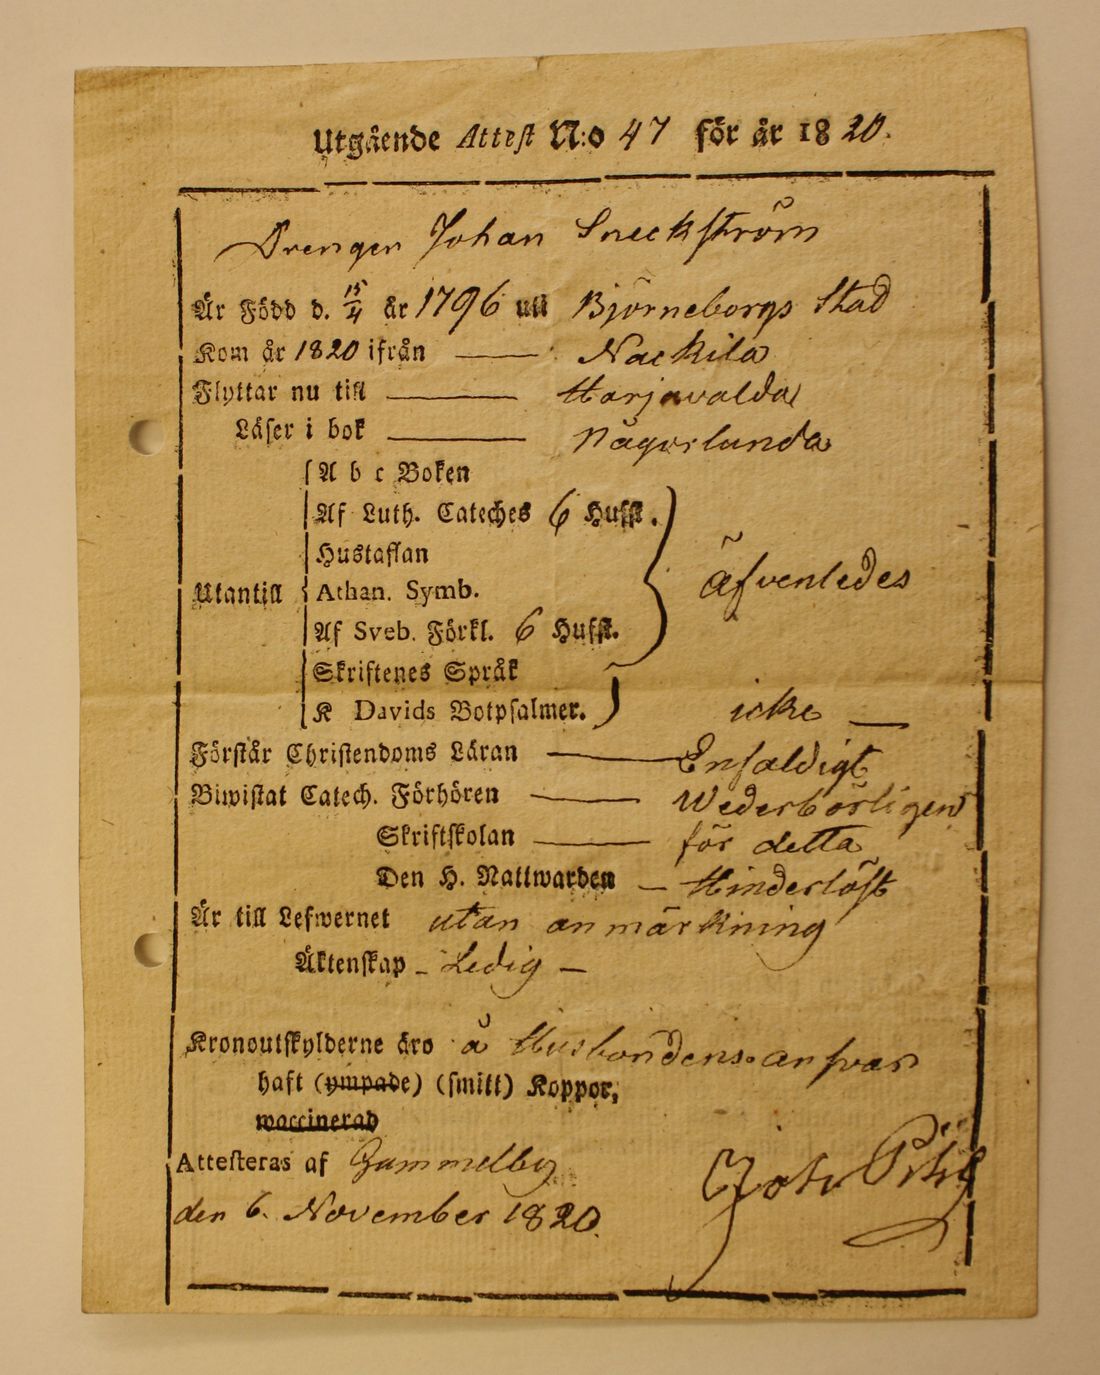 Utgående Attest N:o 47 för år 1820.
Drengen Johan Sneckström
Är Född d. 15/4 år 1796 uti Björneborgs Stad
Kom år 1820 ifrån — Nackila
Flyttar nu till — Harjavalda
Läser i bok — Någorlunda
A b c Boken
Af Luth. Cateches 6 Hufst.
Hustaflan
Utantill Athan. Symb. äfvenledes
Af Sveb. Förkl. 6 Hufst.
Skriftenes Språk
K Davids Botpsalmer. icke —
Förstår Christendoms Läran — Enfaldigt
Biwistat Catech. Förhören — Wederbörligen
Skriftskolan — för detta
Den H. Nattwarden — Hinderlöst
Är till Lefwernet utan anmärkning
Äktenskap - Ledig —
Kronoutskylderne äro å Husbondens answar
haft (ympade) (smitt) Koppor,
waccinerad
Attesteras af Gammelby
den 6. November 1820.